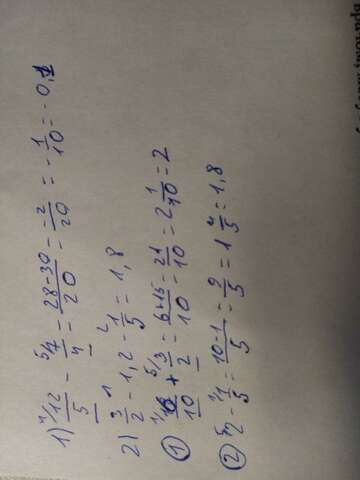 1) 12/5 - 7/4 = 28-30/20 = -2/20 = -1/10 = -0,1
2) 3/2 - 1,2 - 1/5 = 1,8
① 6/10 + 3/2 = 6+15/10 = 21/10 = 2 1/10 = 2
② 2 - 1/5 = 10-1/5 = 9/5 = 1 4/5 = 1,8